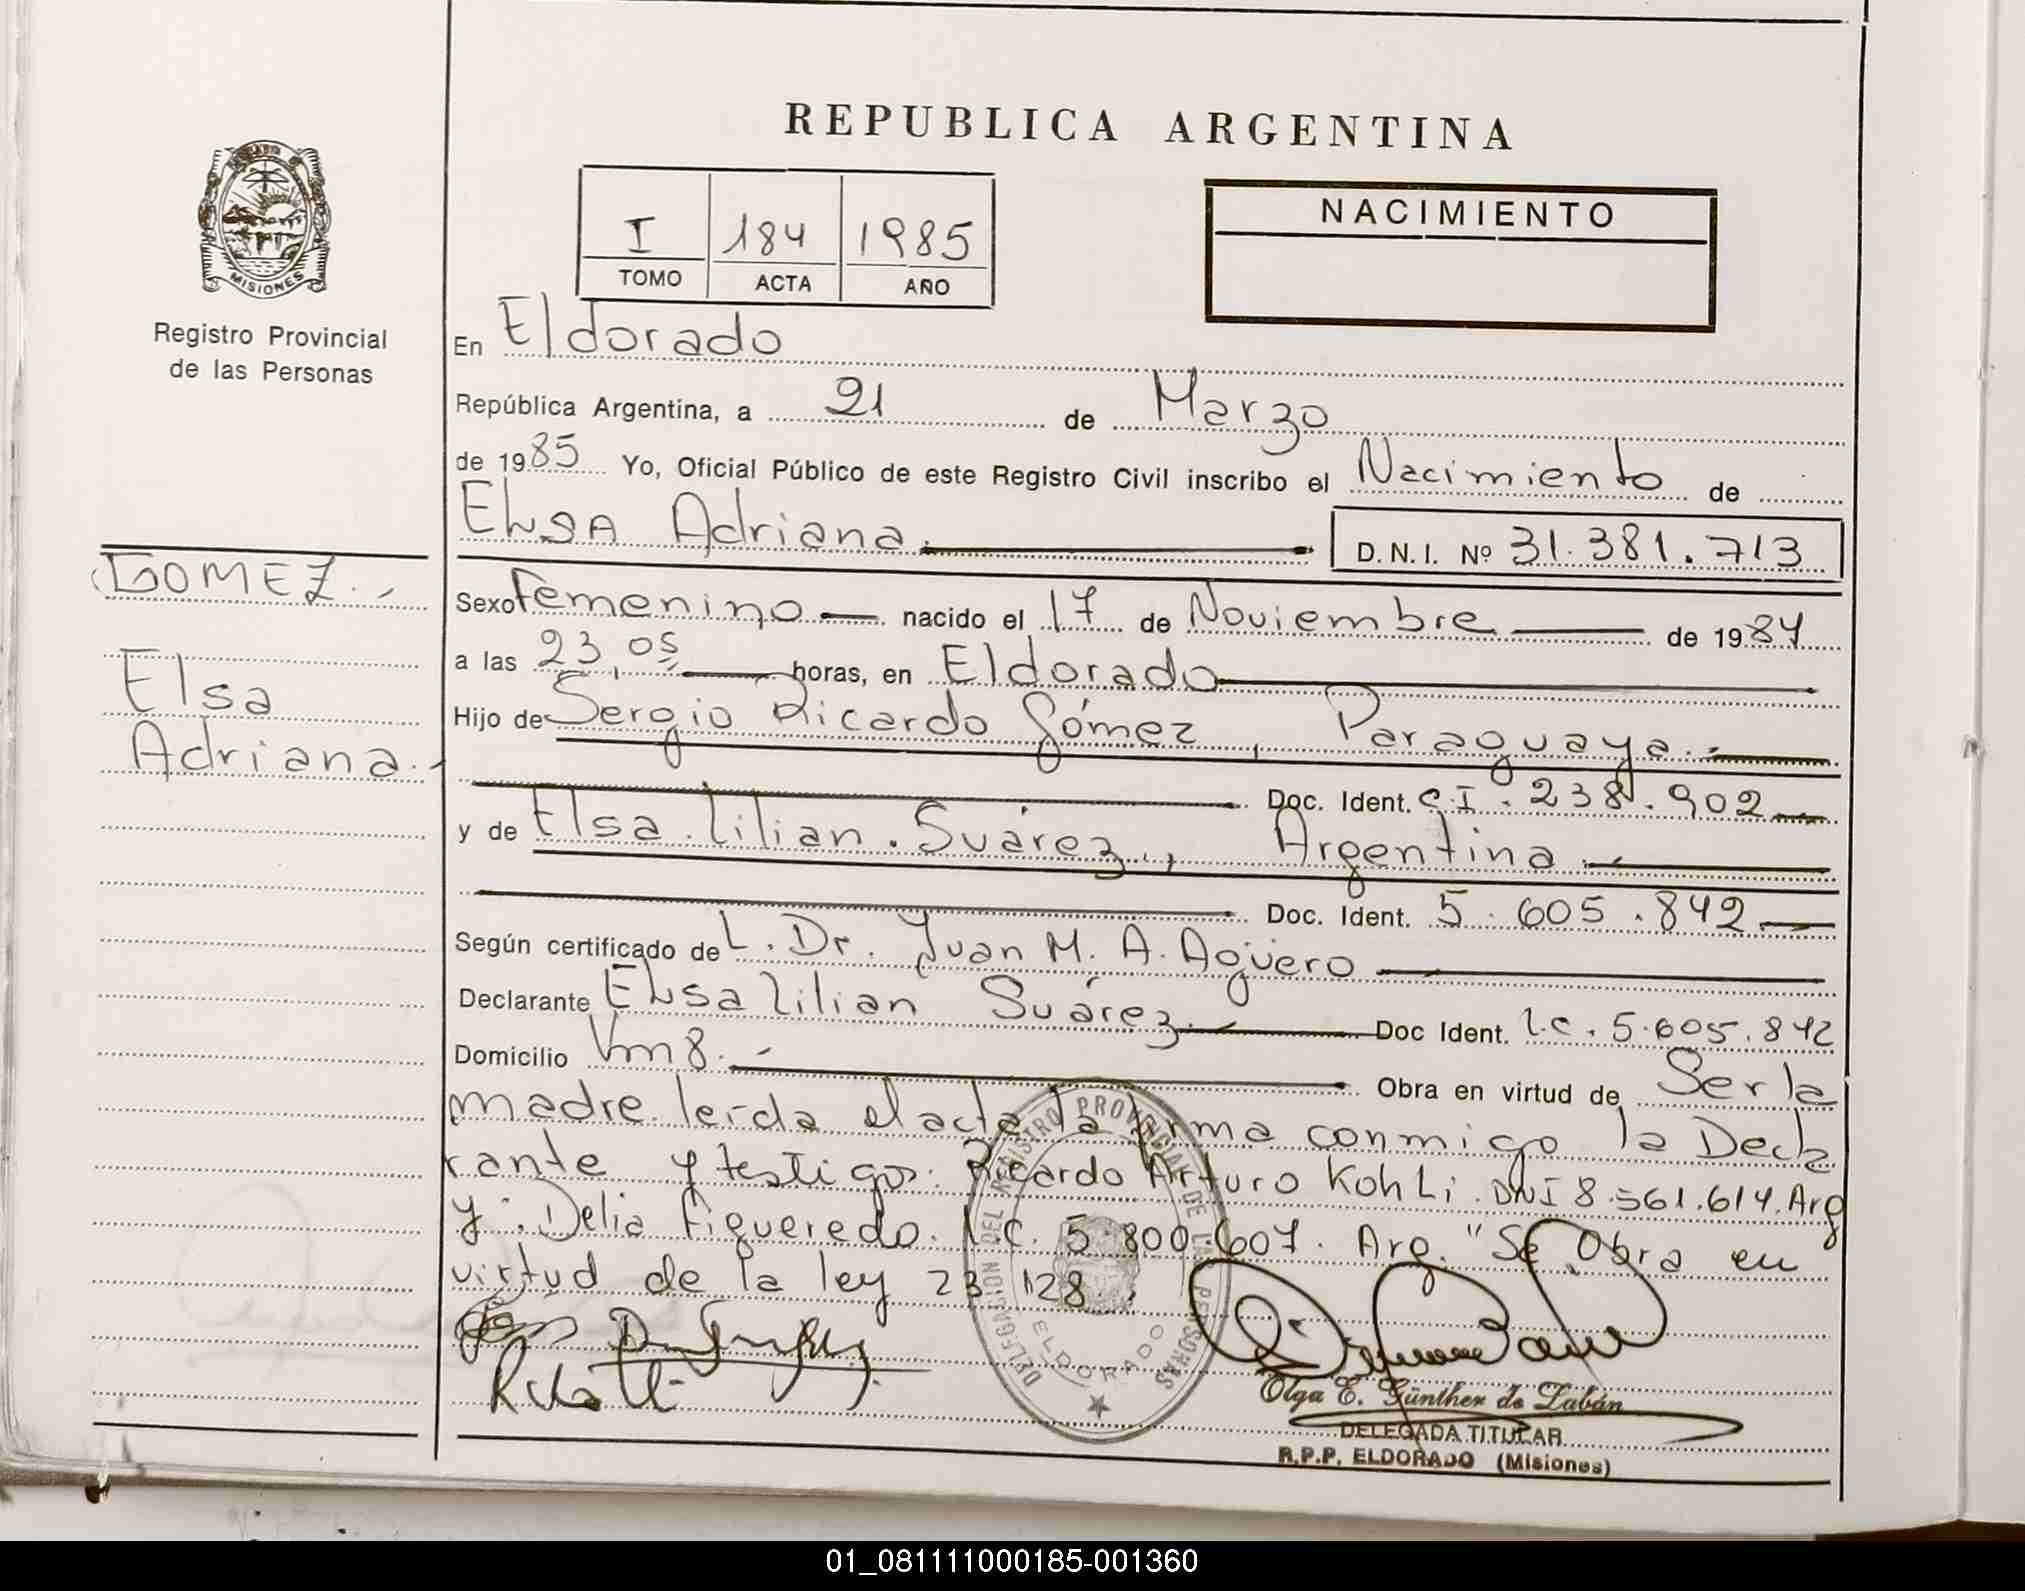 REPUBLICA ARGENTINA
MISIONES
Registro Provincial
de las Personas
I 184 1985
TOMO ACTA AÑO
NACIMIENTO
En Eldorado
República Argentina, a 21 de Marzo
de 1985 Yo, Oficial Público de este Registro Civil inscribo el Nacimiento de
Elsa Adriana.
D.N.I. Nº 31.381.713
GOMEZ.-
Elsa
Adriana.-
Sexo Femenino nacido el 17 de Noviembre de 1984
a las 23,05 horas, en Eldorado
Hijo de Sergio Ricardo Gómez, Paraguaya.-
Doc. Ident. C.I. 238.902
y de Elsa Lilian Suárez, Argentina.-
Doc. Ident. 5.605.842
Según certificado de L. Dr. Juan M. A. Agüero
Declarante Elsa Lilian Suárez Doc Ident. L.C. 5.605.842
Domicilio Km 8.- Obra en virtud de Ser la
madre. leída el acta la firma conmigo la Decla
rante y testigos: Ricardo Arturo Kohli. DNI 8.561.614. Arg
y. Delia Figueredo. L.C. 5.800.607. Arg. "Se Obra en
virtud de la ley 23 128.
DELEGACION DEL REGISTRO PROVINCIAL DE LAS PERSONAS
ELDORADO
Olga E. Günther de Zabán
DELEGADA TITULAR
R.P.P. ELDORADO (Misiones)
01_081111000185-001360